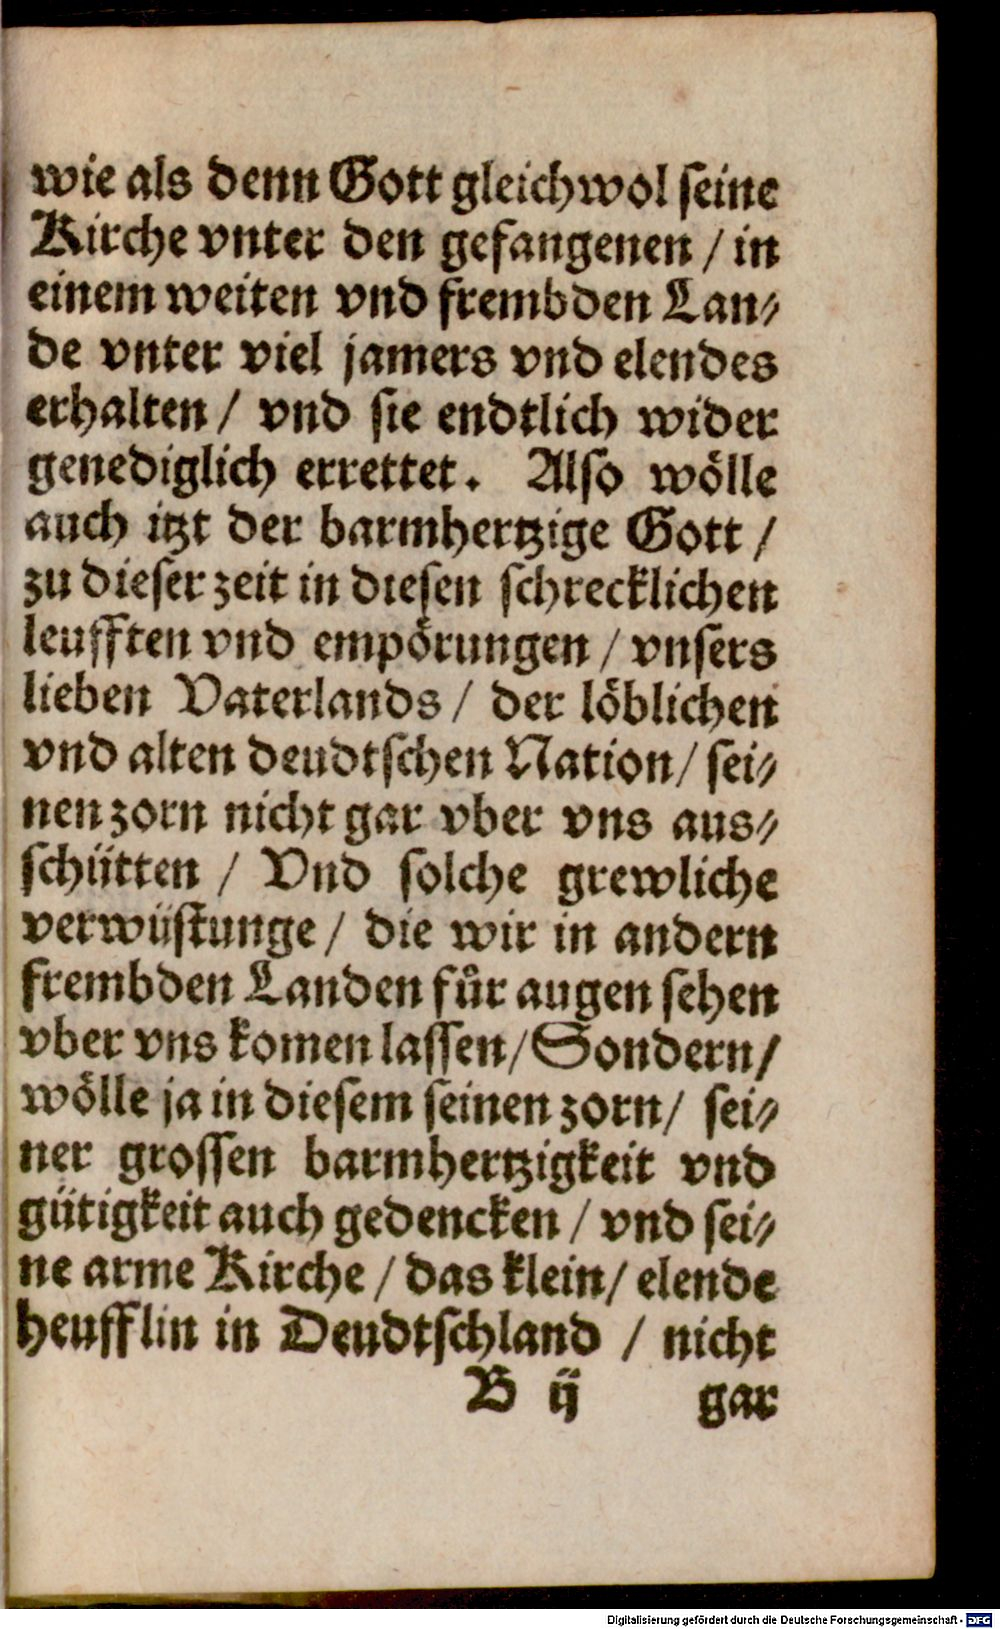 wie als denn Gott gleichwol seine
Kirche vnter den gefangenen / in
einem weiten vnd frembden Lan⸗
de vnter viel jamers vnd elendes
erhalten / vnd sie endtlich wider
genediglich errettet. Also wölle
auch itzt der barmhertzige Gott /
zu dieser zeit in diesen schrecklichen
leufften vnd empörungen / vnsers
lieben Vaterlands / der löblichen
vnd alten deudtschen Nation / sei⸗
nen zorn nicht gar vber vns aus⸗
schütten / Vnd solche grewliche
verwüstunge / die wir in andern
frembden Landen für augen sehen
vber vns komen lassen / Sondern /
wölle ja in diesem seinen zorn / sei⸗
ner grossen barmhertzigkeit vnd
gütigkeit auch gedencken / vnd sei⸗
ne arme Kirche / das klein / elende
heufflin in Deudtschland / nicht
B ij gar
Digitalisierung gefördert durch die Deutsche Forschungsgemeinschaft - DFG